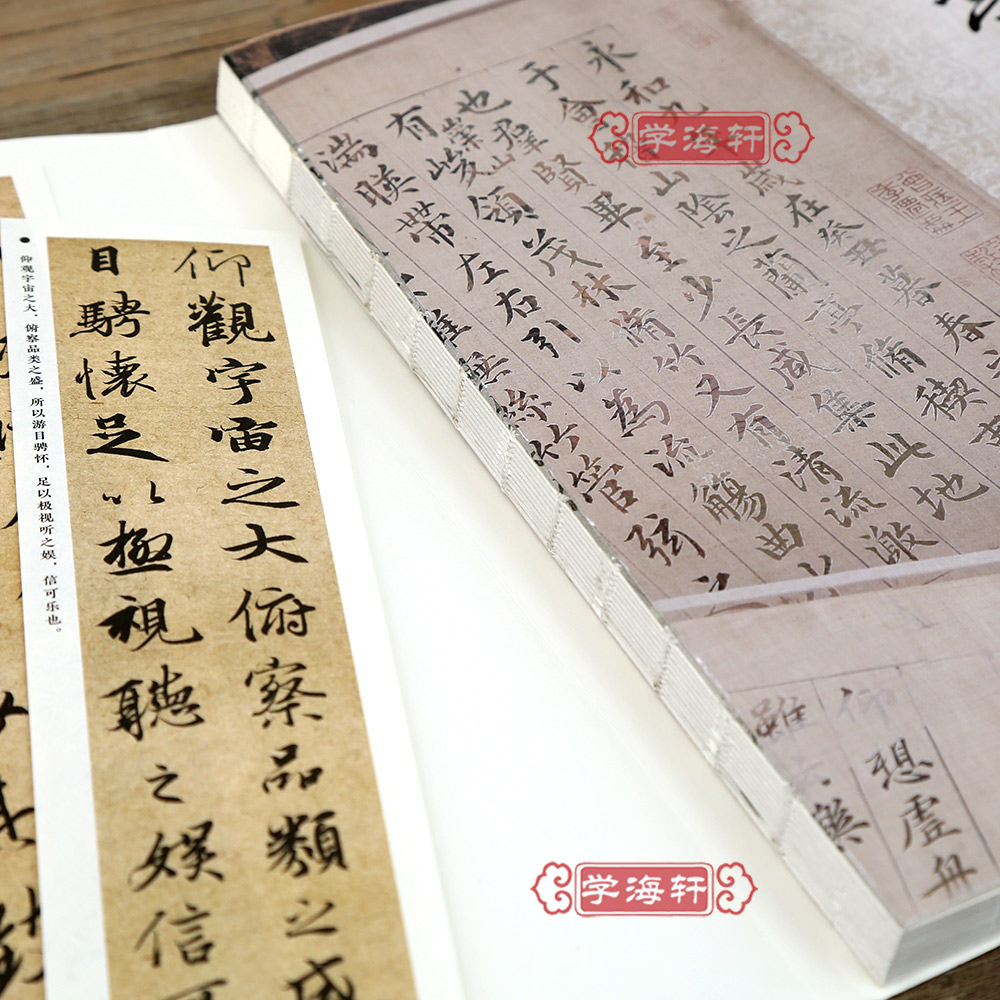 永和九歲在癸丑暮春
于會稽山陰之蘭亭脩稧事
也羣賢畢至少長咸集此地
有崇山峻領茂林脩竹又有清流激
湍暎帶左右引以為流觴曲水
雖無絲竹管弦之
仰想虛舟
雖
仰觀宇宙之大俯察品類之盛
目騁懷足以極視聽之娛信可
仰观宇宙之大，俯察品类之盛，所以游目骋怀，足以极视听之娱，信可乐也。
学海轩
学海轩